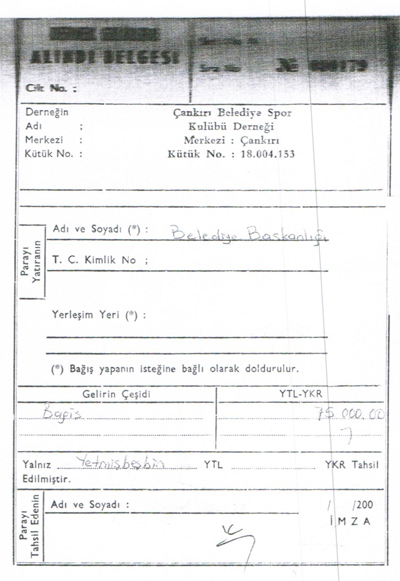 ALINDI BELGESİ
Cilt No. :
Derneğin Çankırı Belediye Spor
Adı : Kulübü Derneği
Merkezi : Merkezi : Çankırı
Kütük No. : Kütük No. : 18.004.153
Parayı Yatıranın
Adı ve Soyadı (*) : Belediye Başkanlığı
T. C. Kimlik No ;
Yerleşim Yeri (*) :
(*) Bağış yapanın isteğine bağlı olarak doldurulur.
Gelirin Çeşidi YTL-YKR
Bağış 75.000,00
Yalnız Yetmişbeşbin YTL YKR Tahsil
Edilmiştir.
Parayı Tahsil Edenin
Adı ve Soyadı : / /200
İMZA